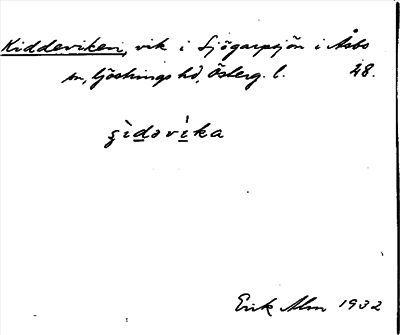 Kiddeviken, vik i Sjögarpsjön i Åsbo
sn, Göstrings hd, Österg. l. 28.
gìdəvíka
Erik Alm 1932